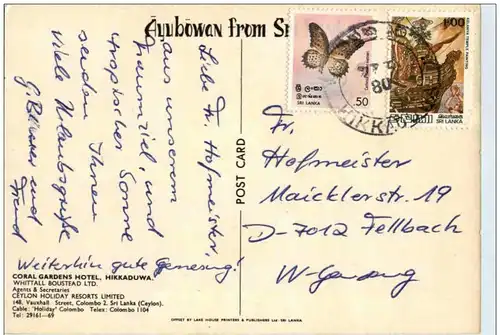 Ayubōwan from Sr
Liebe Fr. Hofmeister,
aus unserem
Traumziel, und
tropischer Sonne
senden Ihnen
viele Urlaubsgrüße
und
Weiterhin gute Genesung!
CORAL GARDENS HOTEL, HIKKADUWA.
WHITTALL BOUSTEAD LTD.
Agents & Secretaries
CEYLON HOLIDAY RESORTS LIMITED
148, Vauxhall Street, Colombo 2, Sri Lanka (Ceylon).
Cable: "Holiday" Colombo Telex: Colombo 1104
Tel: 29161—69
POST CARD
OFFSET BY LAKE HOUSE PRINTERS & PUBLISHERS Ltd. SRI LANKA.
SRI LANKA
.50
1.00
SRI LANKA
80
Fr.
Hofmeister
Maicklerstr. 19
D-7012 Fellbach
W-Germany